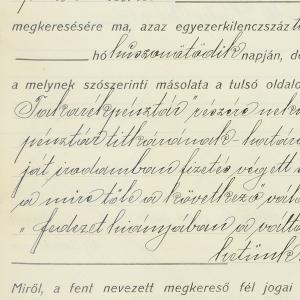 megkeresésére ma, azaz egyezerkilenczszáz
hó huszonötödik napján, d
a melynek szószerinti másolata a tulsó oldalo
Takarékpénztár" részére nek
pénztár titkárának határ
ját irodámban fizetés végett
a mire tőle a következő vál
"fedezet hiányjában a váltó
hetünk
Miről, a fent nevezett megkereső fél jogai